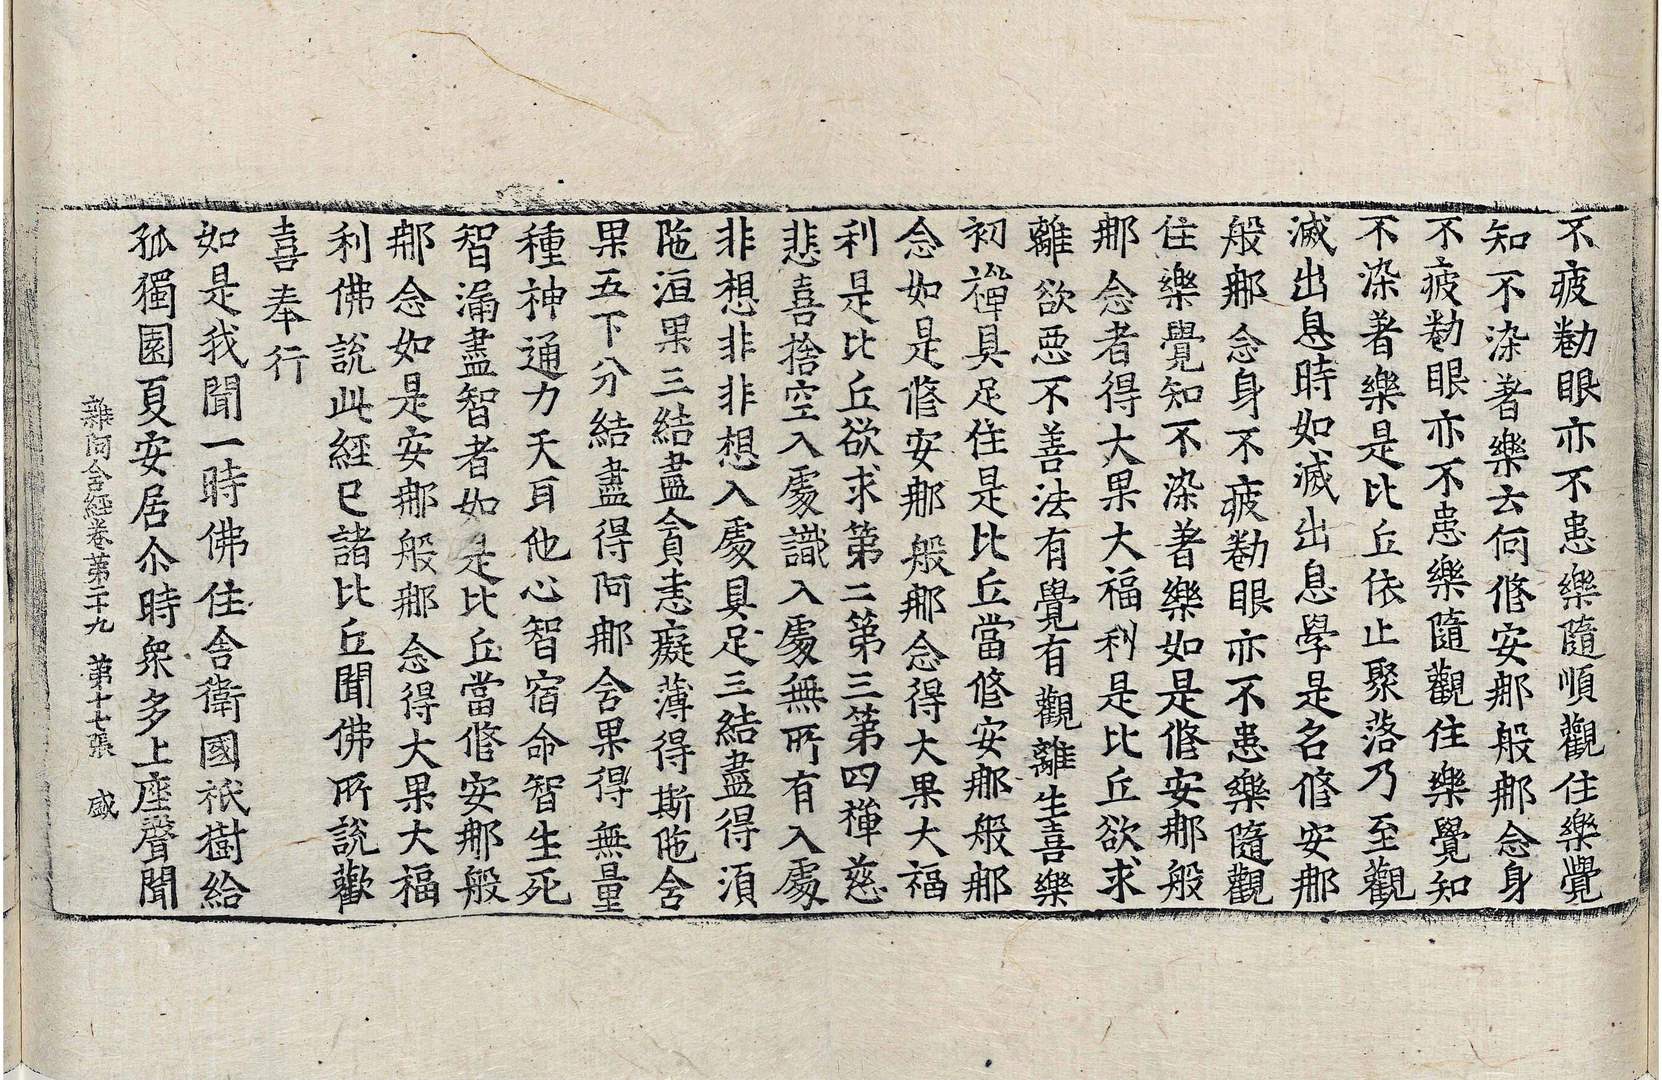 不疲勌眼亦不患樂隨順觀住樂覺
知不染著樂云何修安那般那念身
不疲勌眼亦不患樂隨觀住樂覺知
不染著樂是比丘依止聚落乃至觀
滅出息時如滅出息學是名修安那
般那念身不疲勌眼亦不患樂隨觀
住樂覺知不染著樂如是修安那般
那念者得大果大福利是比丘欲求
離欲惡不善法有覺有觀離生喜樂
初禪具足住是比丘當修安那般那
念如是修安那般那念得大果大福
利是比丘欲求第二第三第四禪慈
悲喜捨空入處識入處無所有入處
非想非非想入處具足三結盡得湏
陁洹果三結盡貪恚癡薄得斯陁含
果五下分結盡得阿那含果得無量
種神通力天耳他心智宿命智生死
智漏盡智者如是比丘當修安那般
那念如是安那般那念得大果大福
利佛說此經已諸比丘聞佛所說歡
喜奉行
如是我聞一時佛住舍衛國祇樹給
孤獨園夏安居尒時衆多上座聲聞
雜阿含經卷第二十九 第十七張 盛